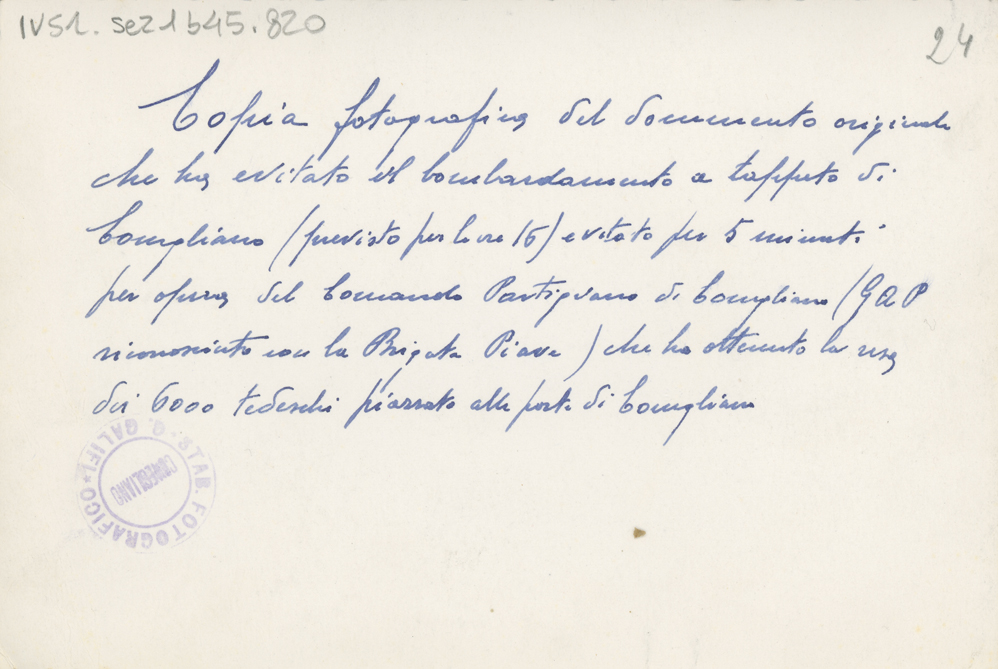 IVSL. sez1 b45. 820
24
Copia fotografica del documento originale
che ha evitato il bombardamento a tappeto di
Conegliano (previsto per le ore 15) evitato per 5 minuti
per opera del Comando Partigiano di Conegliano (GAP
riconosciuto con la Brigata Piave) che ha ottenuto la resa
dei 6000 tedeschi piazzato alle porte di Conegliano
STAB. FOTOGRAFICO * G. GALIFI *
CONEGLIANO